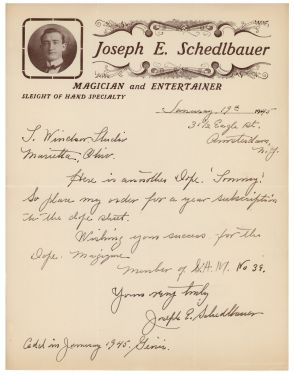 Joseph E. Schedlbauer
MAGICIAN and ENTERTAINER
SLEIGHT OF HAND SPECIALTY
January 19th 1945
Eagle St.
Amsterdam,
N.Y.
T. Windsor Studio
Marietta, Ohio.
Here is another Dope! Tommy!
So place my order for a year subscription
to the dope sheet.
Wishing you success for the
Dope Magazine
Member of No 39.
Yours very truly
Joseph E. Schedlbauer
in January 1945. Genii.